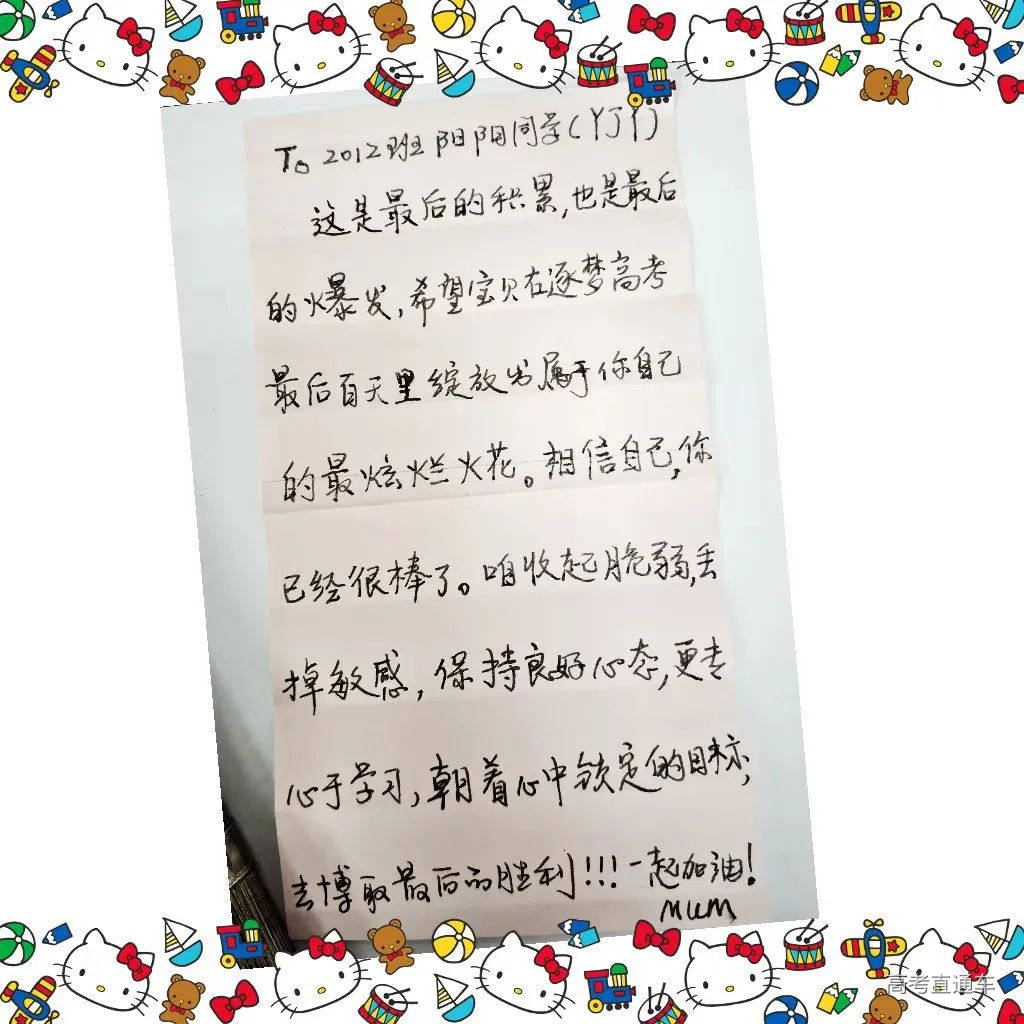 To 2012班 阳阳同学(YJY)
这是最后的积累,也是最后
的火爆发,希望宝贝在逐梦高考
最后百天里绽放出属于你自己
的最炫烂火花。相信自己,你
已经很棒了。咱收起脆弱,丢
掉敏感,保持良好心态,更专
心于学习,朝着心中锁定的目标,
去博取最后的胜利!!!一起加油!
MUM
高考直通车